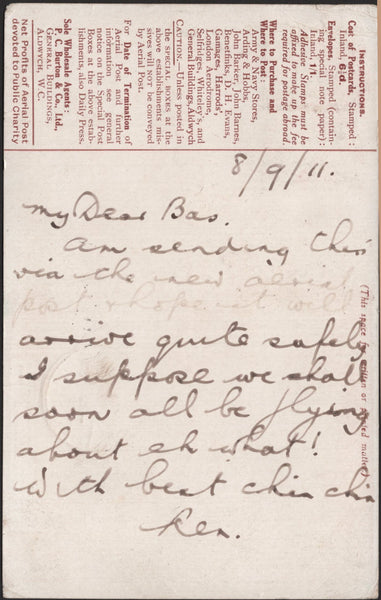 INSTRUCTIONS.
Cost of Postcards, Stamped :
Inland, 6½d
Envelopes, Stamped (contain-
ing special note paper):
Inland, 1/1.
Adhesive Stamps must be
affixed to make up the fee
required for postage abroad.
Where to Purchase and
Where to Post :
Army & Navy Stores,
Arding & Hobbs,
John Barker, John Barnes,
Benefinks, D. H. Evans,
Gamages, Harrod's,
London Aerodrome,
Selfridges, Whiteley's, and
General Buildings, Aldwych
CAUTION.—Unless posted in
the SPECIAL BOXES at the
above establishments mis-
sives will NOT be conveyed
by Aerial Post.
For Date of Termination of
Aerial Post and further
information see general
notices on the Special Post
Boxes at the above estab-
lishments, also Daily Press.
Sole Wholesale Agents :
W. C. Berton & Co., Ltd.,
GENERAL BUILDINGS,
ALDWYCH, W C.
Net Profits of Aerial Post
devoted to Public Charity
8/9/11.
My Dear Bas.
Am sending this
via the new aerial
post & hope it will
arrive quite safely
I suppose we shall
soon all be flying
about eh what!
With best chin chin
Ken.
(This space for written or printed matter)